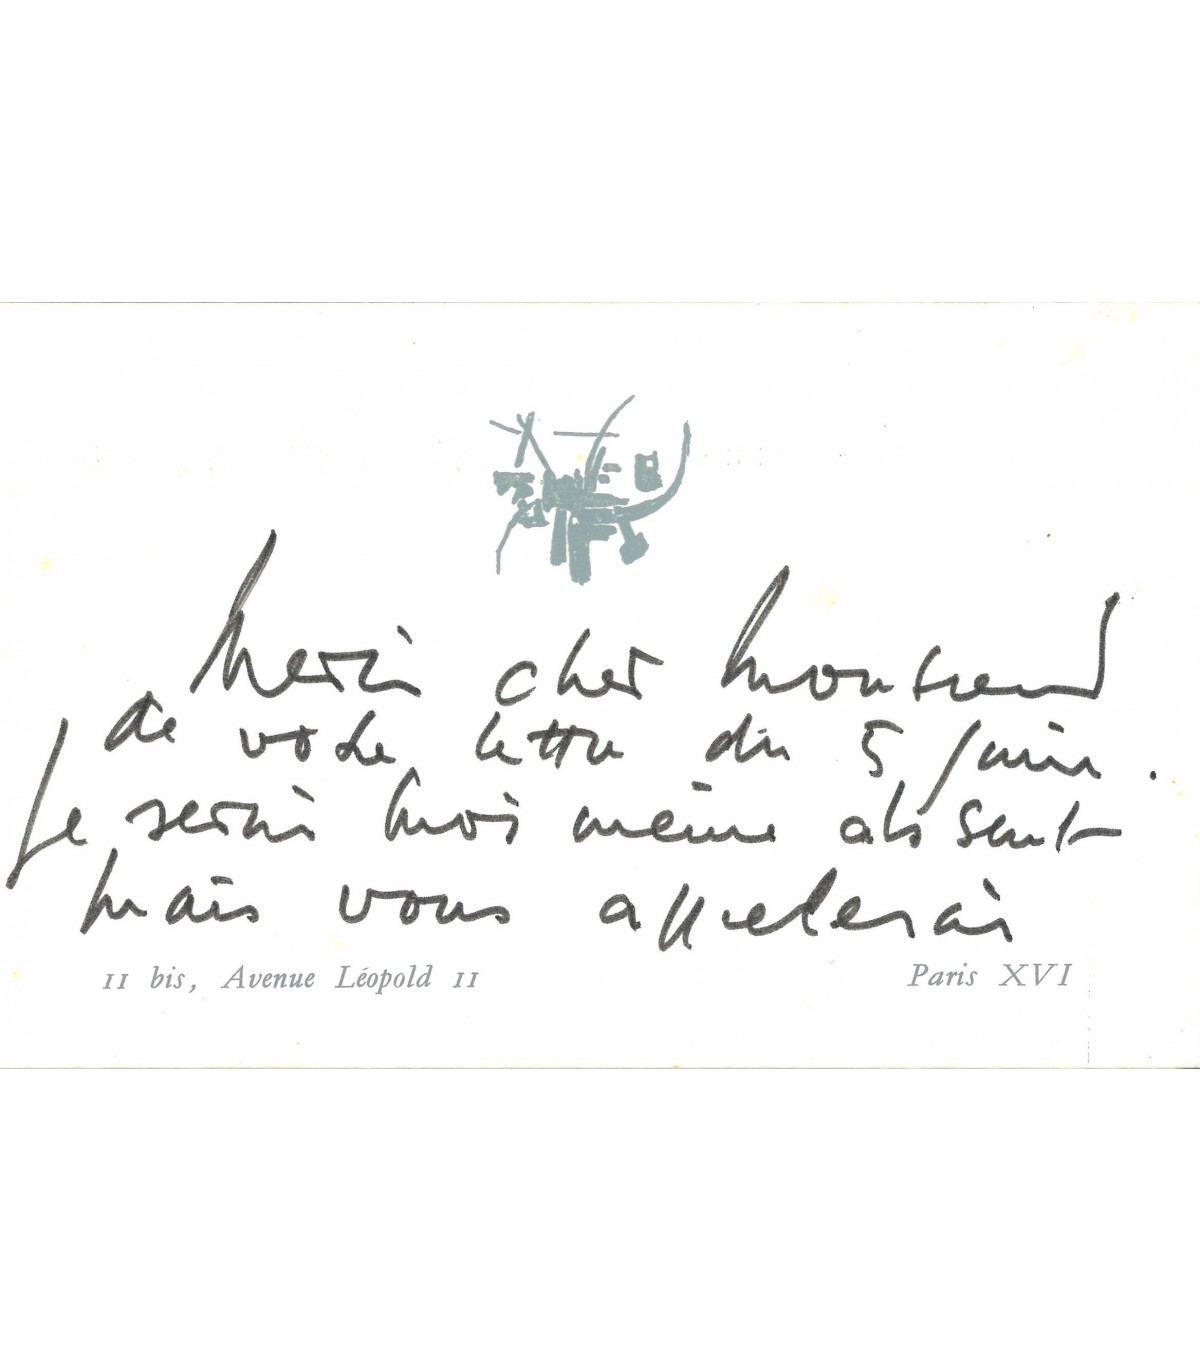 Merci cher Monsieur
de votre lettre du 5 juin.
Je serai moi même absent
mais vous appelerai
11 bis, Avenue Léopold II
Paris XVI